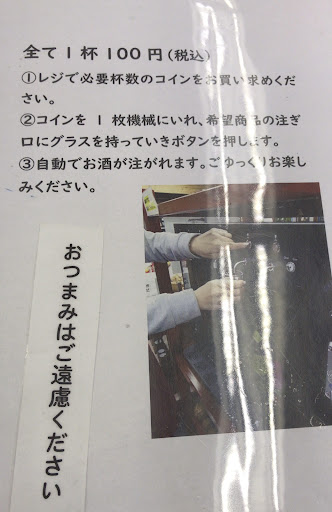 全て1杯100円(税込)
①レジで必要杯数のコインをお買い求めくだ
さい。
②コインを1枚機械にいれ、希望商品の注ぎ
口にグラスを持っていきボタンを押します。
③自動でお酒が注がれます。ごゆっくりお楽し
みください。
おつまみはご遠慮ください